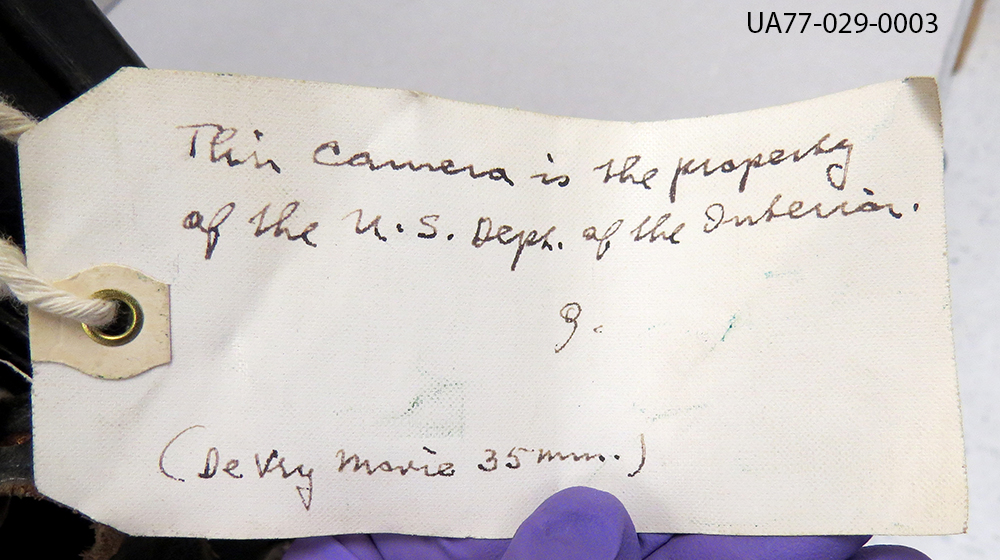 UA77-029-0003
This camera is the property
of the U.S. Dept. of the Interior.
(De Vry Movie 35 mm.)